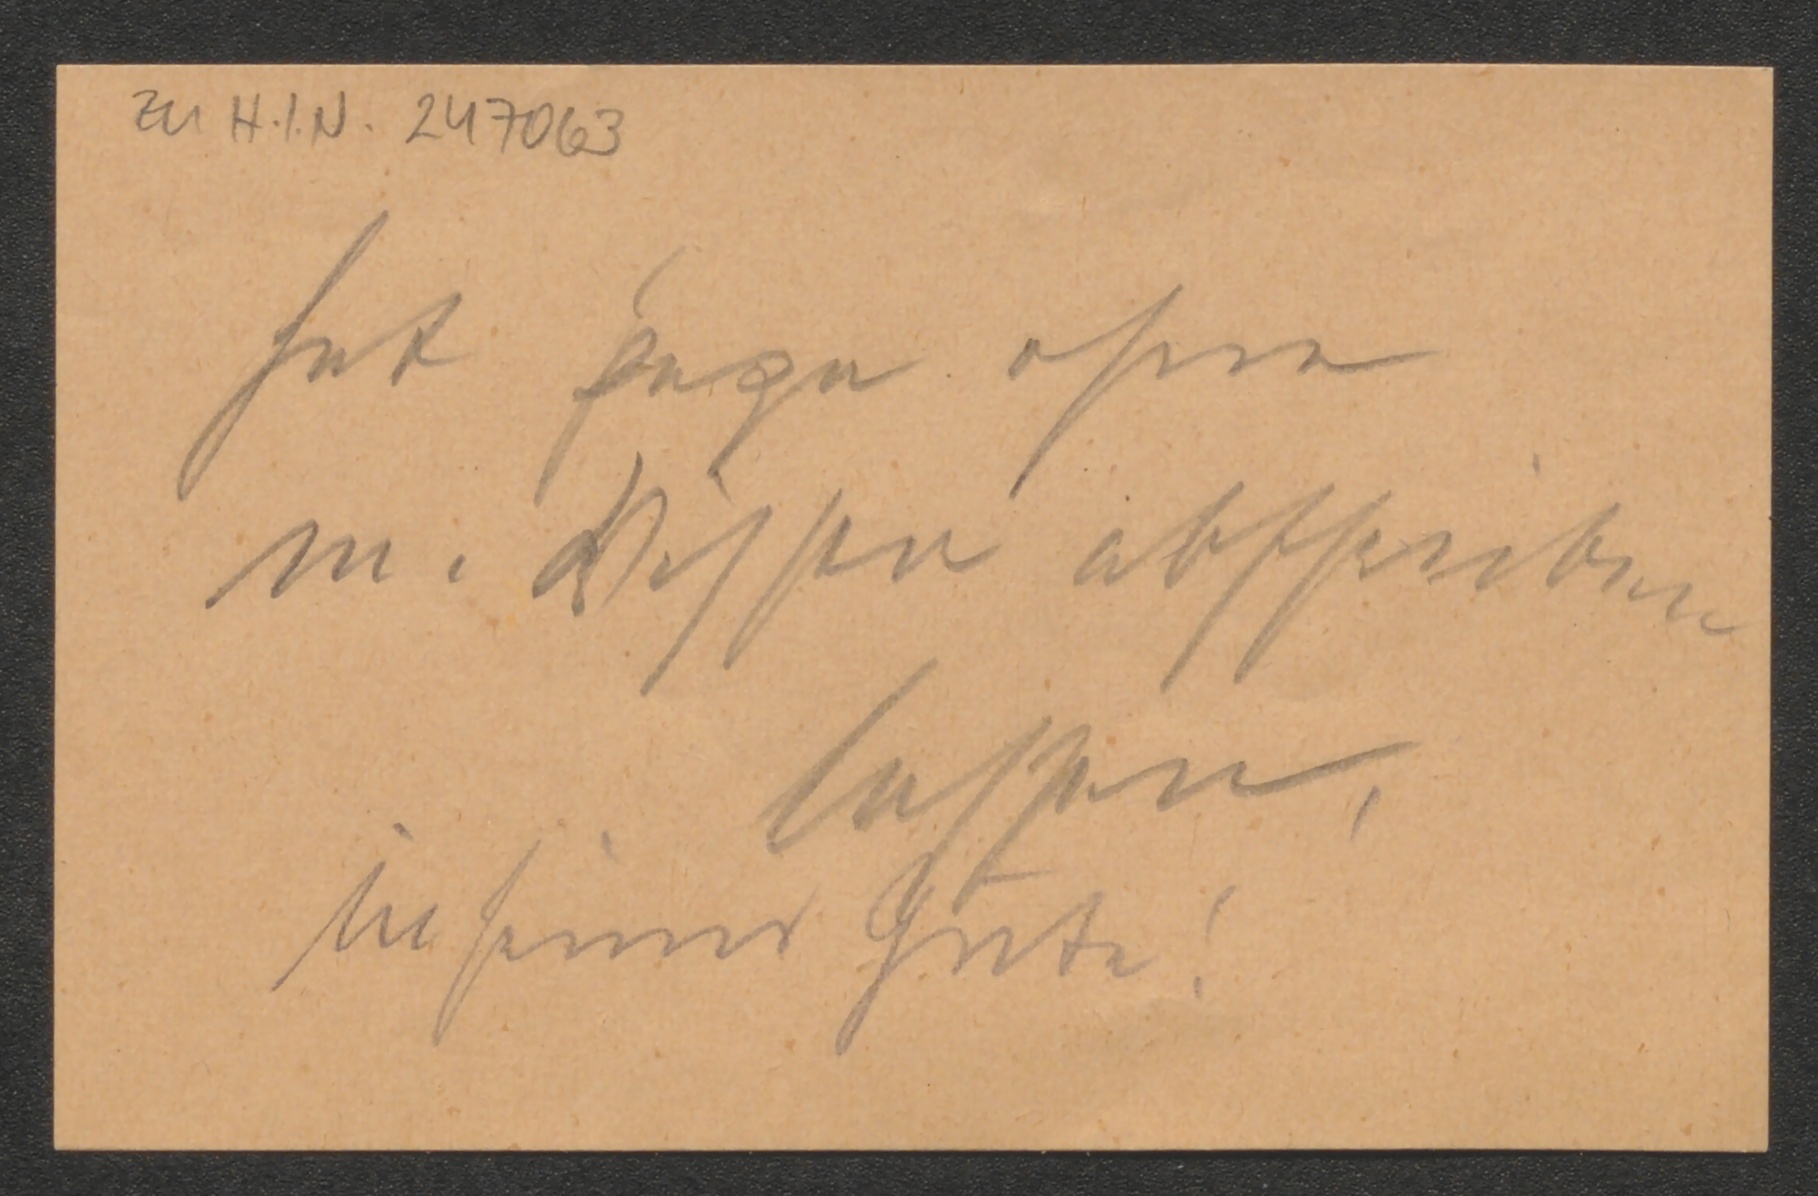 zu H.I.N. 247063
hat Papa ohne
m. Wissen abschreiben
lassen,
in seiner Güte!